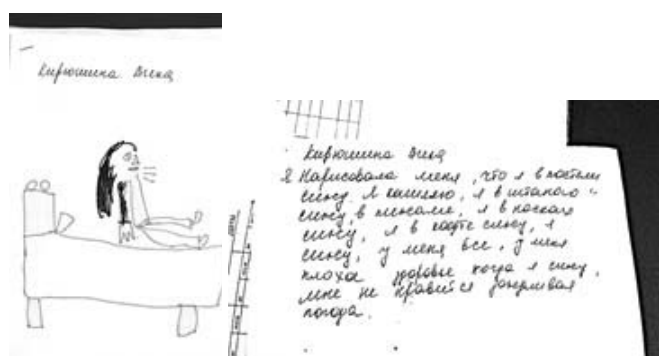 Кирюшина Вика
Кирюшина Вика
2 Нарисовала меня, что я в постели
сижу. Я кашляю, я в штанах
сижу, в пижаме, я в носках
сижу, я в кофте сижу, я
сижу, у меня все, у меня
плохое здоровье когда я сижу,
мне не нравится дождливая
погода.